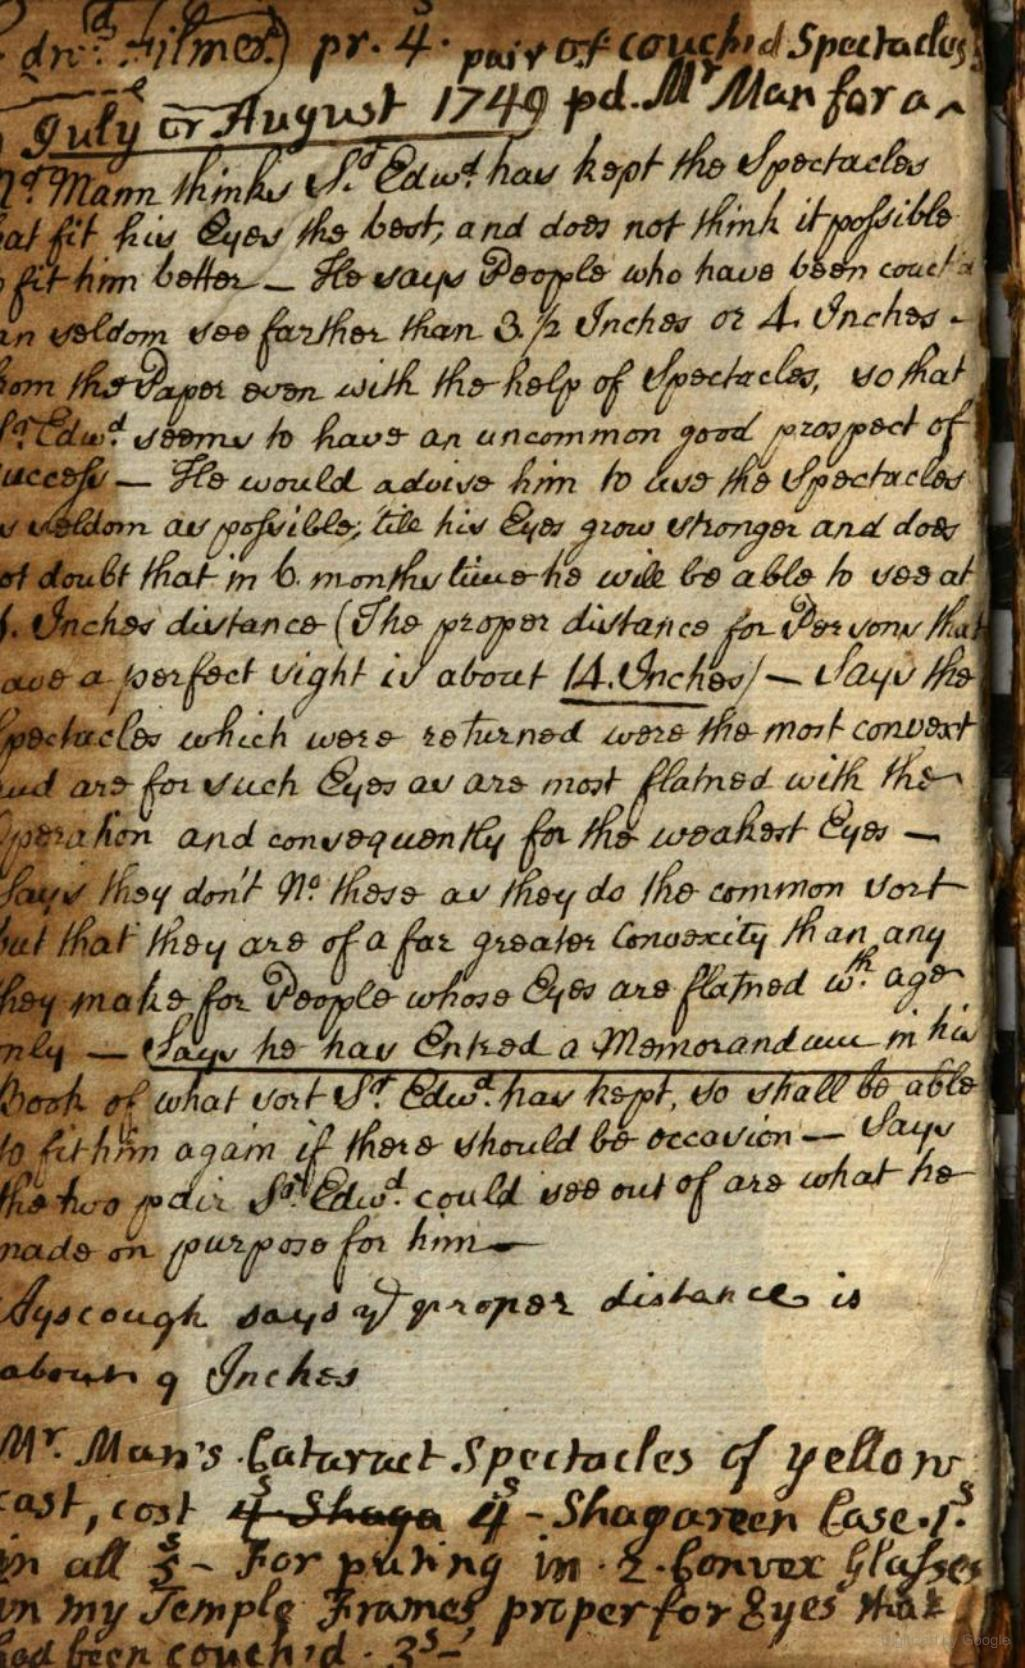 dr:d Filmer) pr. 4s. pair of couch'd Spectacles
July or August 1749 pd. Mr Man for a
Mr. Mann thinks Sr. Edwd. has kept the Spectacles
hat fit his Eyes the best, and does not think it possible
o fit him better — He says People who have been couch'd
an seldom see farther than 3. 1/2 Inches or 4. Inches -
rom the Paper even with the help of Spectacles, so that
Sr. Edwd. seems to have an uncommon good prospect of
uccess — He would advise him to use the Spectacles
s seldom as possible, 'till his Eyes grow stronger and does
ot doubt that in 6. months time he will be able to see at
Inches distance (The proper distance for Persons that
ave a perfect sight is about 14. Inches) — Says the
Spectacles which were returned were the most convext
and are for such Eyes as are most flatned with the
Operation and consequently for the weakest Eyes —
Says they don't No. these as they do the common sort
but that they are of a far greater Convexity than any
they make for People whose Eyes are flatned wth. age
nly — Says he has Entred a Memorandum in his
Book of what sort Sr. Edwd. has kept, so shall be able
to fit him again if there should be occasion — Says
the two pair Sr. Edwd. could see out of are what he
made on purpose for him —
Ayscough says ye proper distance is
about 9 Inches
Mr. Man's Cataract Spectacles of yellow
cast, cost 4s Shaga 4s - Shagareen Case. 1s.
in all 5s - For puting in . 2. Convex Glasses
in my Temple Frames, proper for Eyes that
had been couch'd . 3s -